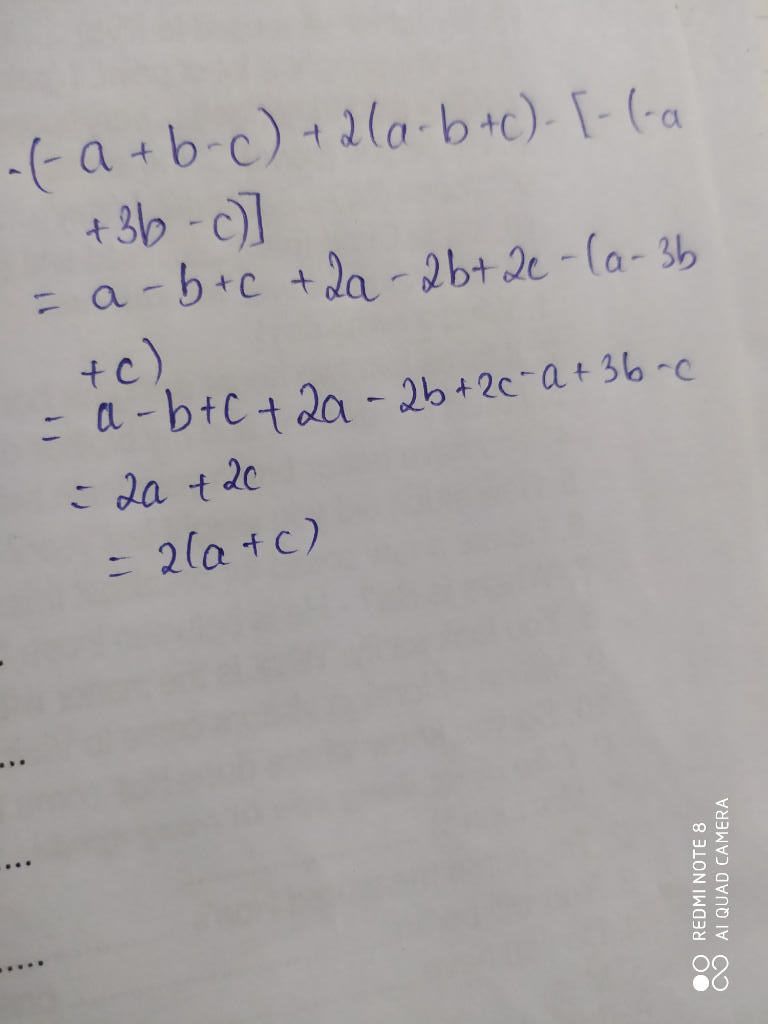 -(-a+b-c)+2(a-b+c)-[-(-a
+3b-c)]
= a-b+c+2a-2b+2c-(a-3b
+c)
= a-b+c+2a-2b+2c-a+3b-c
= 2a+2c
= 2(a+c)
...
....
.....
REDMI NOTE 8
AI QUAD CAMERA